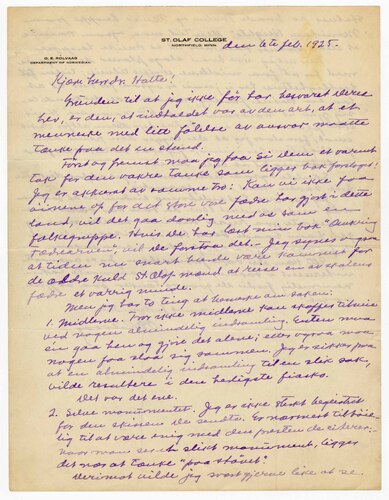 ST. OLAF COLLEGE
NORTHFIELD, MINN.
O. E. ROLVAAG
DEPARTMENT OF NORWEGIAN
den 6te feb. 1925.
Kjære herr dr. Halle!
Grunden til at jeg ikke før har besvaret Deres
brev, er den, at indholdet var av den art, at et
menneke med litt følelse av ansvar maatte
tænke paa det en stund.
Først og fremst maa jeg faa si Dem et varmt
tak for den vakre tanke som ligger bak forslaget!
Jeg er akkurat av samme tro: Kan vi ikke faa
øinene op for det store vore fædre har gjort i dette
land, vil det gaa daarlig med os som en
folkegruppe. Hvis De har læst min bok "Omkring
Fædrearven" vil De forstaa det. — Jeg synes
at tiden nu snart burde være kommet for
de St. Olaf mænd at reise en av skolens
fædre et varig minde.
Men jeg har to ting at bemerke om saken:
1. Midlerne. Tror ikke midlerne kan skaffes tilveie
ved nogen almindelig indsamling. Enten maa
en gaa hen og gjøre det alene; eller ogsaa maa
nogen faa slaa sig sammen. Jeg er sikker paa
at en almindelig indsamling til en slik sak,
vilde resultere i den heiligste fiasko.
Det var det ene.
2. Selve monumentet. Jeg er ikke sterkt begeistret
for den skissen De sendte. Er nærmest tilbøie-
lig til at være enig med den presten De citerer:
Naar man ser et slikt monument, ligger
det nær at tænke "paa støvet".
Derimot vilde jeg svært gjerne like at se